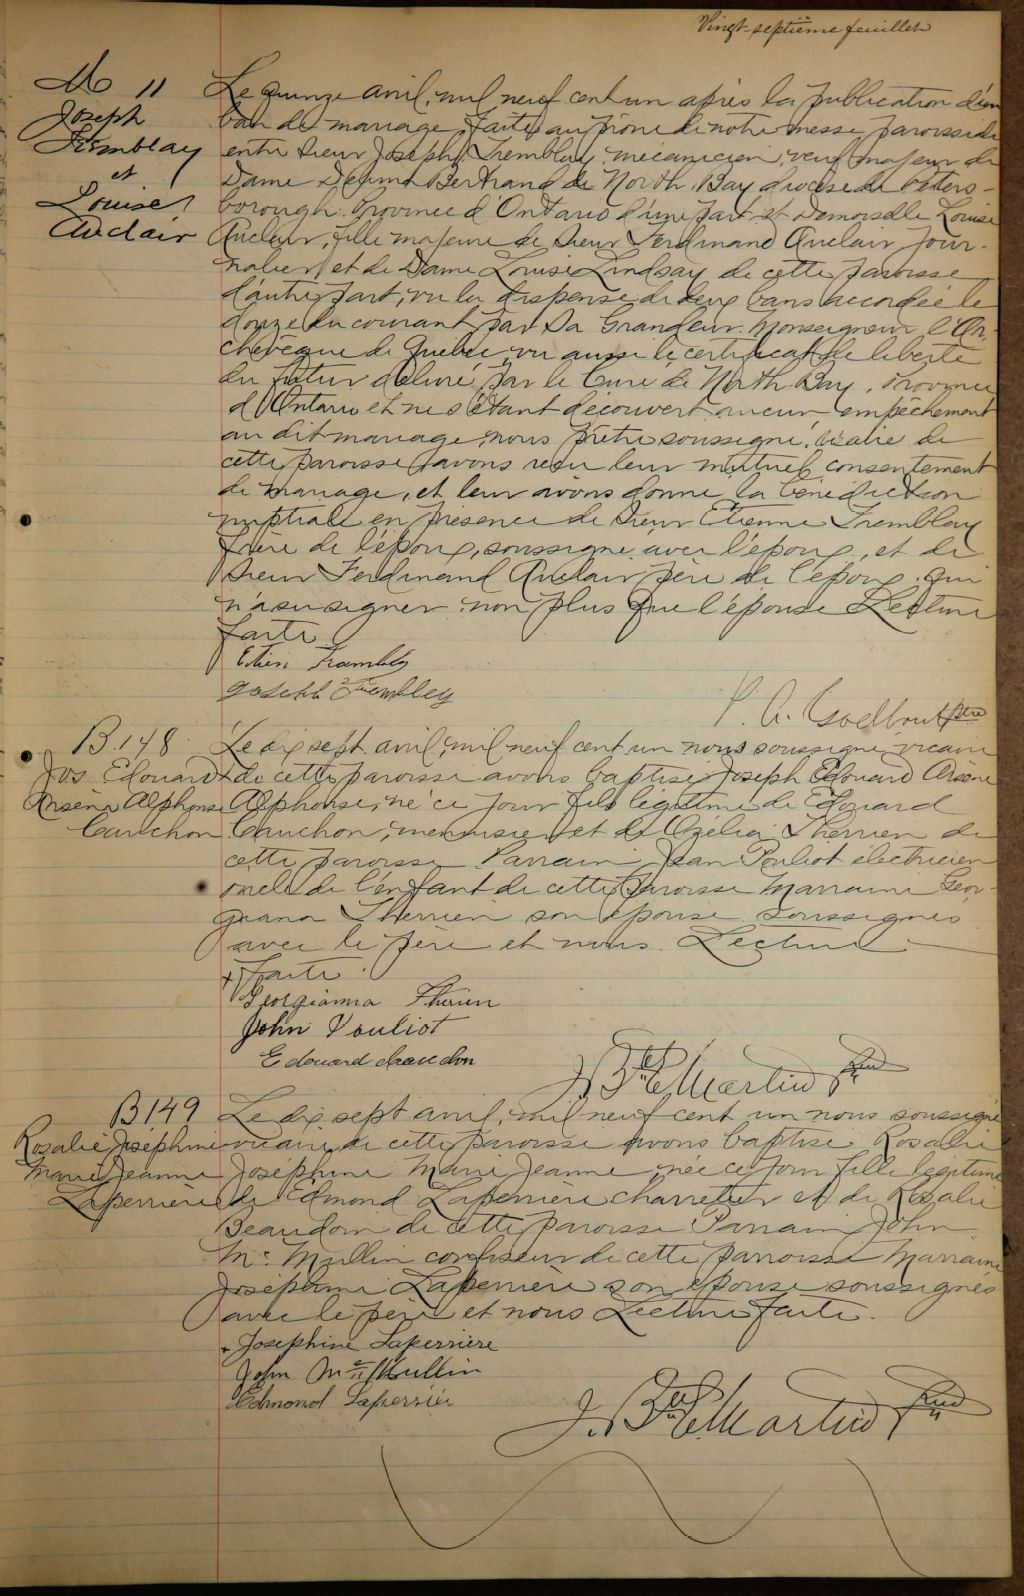 Vingt-septième feuillet
M 11
Joseph
Tremblay
et
Louise
Auclair
Le quinze avril, mil neuf cent un après la publication d'un
ban de mariage, faite au prône de notre messe paroissiale
entre Sieur Joseph Tremblay, mécanicien, veuf majeur de
Dame Bertrand de North Bay diocèse de Peters-
borough Province d'Ontario d'une part et Demoiselle Louise
Auclair, fille majeure de Sieur Ferdinand Auclair jour-
nalier et de Dame Louise Lindsay de cette paroisse
d'autre part; vu la dispense de deux bans accordée le
douze du courant par Sa Grandeur Monseigneur l'Ar-
chevêque de Québec, vu aussi le certificat de liberté
du futur délivré par le Curé de North Bay, Province
d'Ontario et ne s'étant découvert aucun empêchement
au dit mariage, nous prêtre soussigné, vicaire de
cette paroisse avons reçu leur mutuel consentement
de mariage, et leur avons donné la bénédiction
nuptiale en présence de Sieur Etienne Tremblay
frère de l'époux, soussigné avec l'époux, et de
Sieur Ferdinand Auclair père de l'épouse qui
n'a su signer non plus que l'épouse Lecture
faite
Etien Trambley
Joseph Trembley
P. A. Godbout Ptre
B. 148
Jos Edouard
Arsène Alphonse
Cauchon
Le dix sept avril, mil neuf cent un nous soussigné vicaire
de cette paroisse avons baptisé Joseph Edouard Arsène
Alphonse, né ce jour fils légitime de Edouard
Cauchon, menuisier et de Ozélia Therrien de
cette paroisse Parrain Jean Pouliot électricien
oncle de l'enfant de cette paroisse Marraine Geor-
giana Therrien son épouse soussignés
avec le père et nous. Lecture
+ faite.
Georgianna Therien
John Pouliot
Edouard Cauchon
J. Bte E. Martin Ptre
B 149
Rosalie Joséphine
Marie Jeanne
Laperrière
Le dix sept avril, mil neuf cent un nous soussigné
vicaire de cette paroisse avons baptisé Rosalie
Joséphine Marie Jeanne née ce jour fille légitime
de Edmond Laperrière charretier et de Rosalie
Beaudoin de cette paroisse Parrain John
Mc Mullin confiseur de cette parroisse Marraine
Joséphine Laperrière son épouse soussignés
avec le père et nous Lecture faite.
+ Josephine Laperrière
John Mc Mullin
Edmond Laperrière
J. Bte E. Martin Ptre